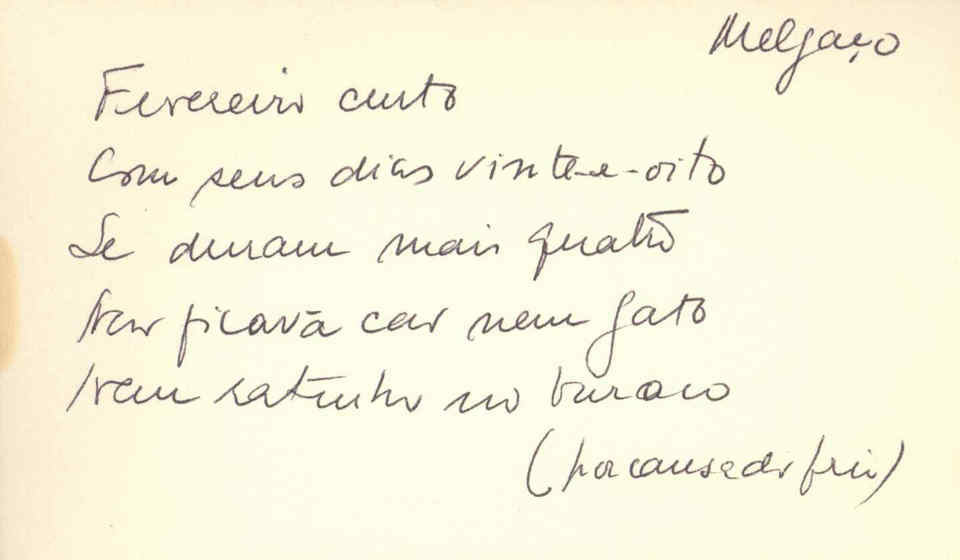 Melgaço
Fevereiro curto
Com seus dias vinte-e-oito
Se duram mais quatro
Nem ficava cão nem gato
Nem ratinho no buraco
(por causa do frio)